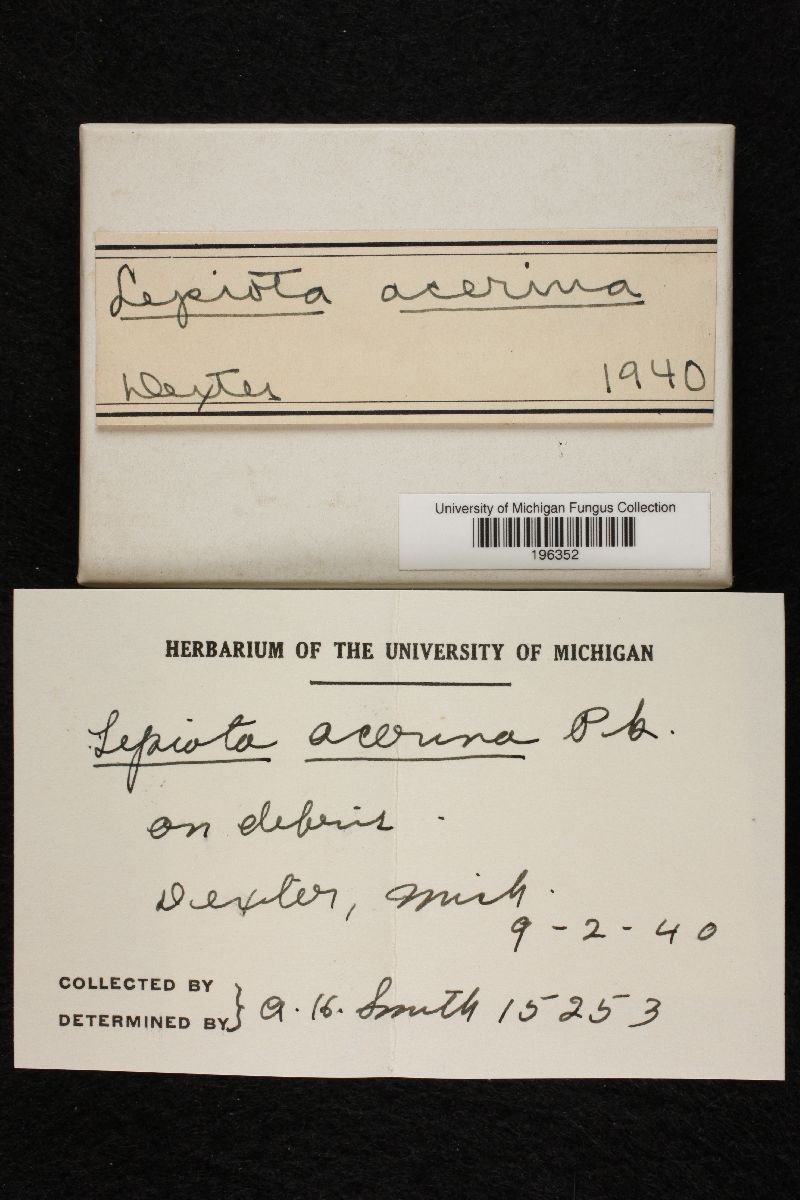 Lepiota acerina
Dexter 1940
University of Michigan Fungus Collection
196352
HERBARIUM OF THE UNIVERSITY OF MICHIGAN
Lepiota acerina Pk.
on debris.
Dexter, Mich.
9-2-40
COLLECTED BY
DETERMINED BY } A. H. Smith 15253